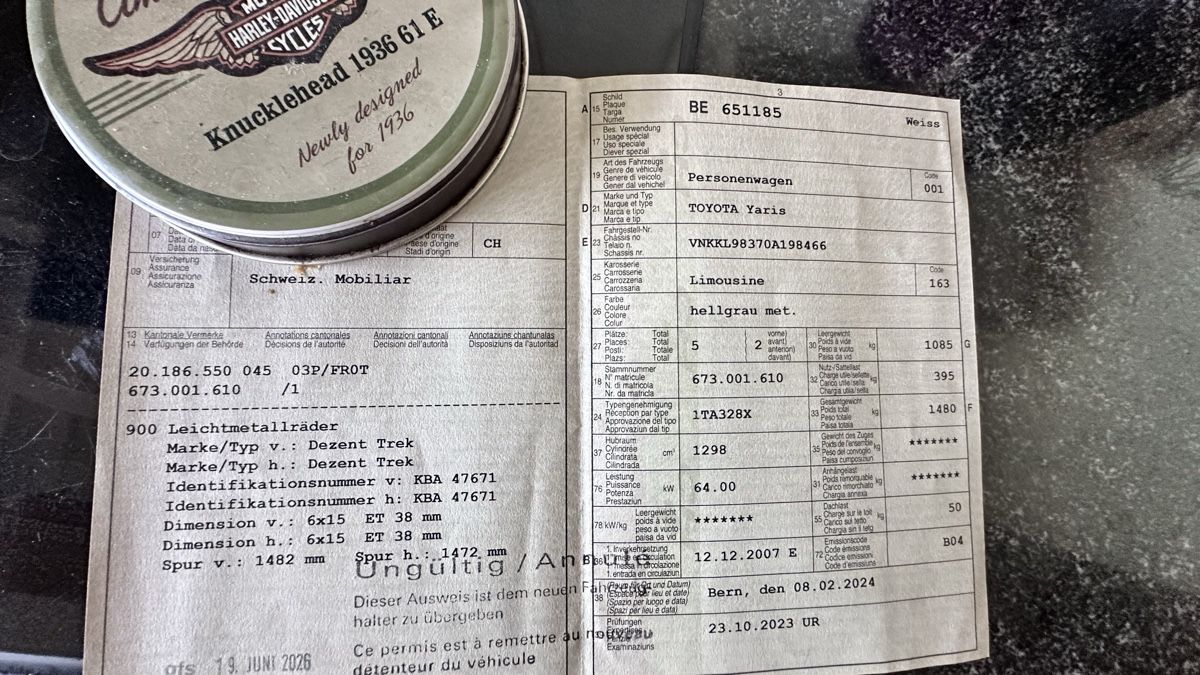 MO
HARLEY-DAVIDSO
CYCLES
Knucklehead 1936 61 E
Newly designed
for 1936
07
Data di
Data da nas
Paese d'origine
Stadi d'origin
CH
09 Versicherung
Assurance
Assicurazione
Assicuranza
Schweiz. Mobiliar
13 Kantonale Vermerke Annotations cantonales Annotazioni cantonali Annotaziuns chantunalas
14 Verfügungen der Behörde Décisions de l'autorité Decisioni dell'autorità Disposiziuns da l'autoritad
20.186.550 045 03P/FROT
673.001.610 /1
900 Leichtmetallräder
Marke/Typ v.: Dezent Trek
Marke/Typ h.: Dezent Trek
Identifikationsnummer v: KBA 47671
Identifikationsnummer h: KBA 47671
Dimension v.: 6x15 ET 38 mm
Dimension h.: 6x15 ET 38 mm
Spur v.: 1482 mm Spur h.: 1472 mm
Ungültig / Annulé
Dieser Ausweis ist dem neuen Fahrzeug-
halter zu übergeben
Ce permis est à remettre au nouveau
détenteur du véhicule
ofs 19. JUNI 2026
3
A 15 Schild
Plaque
Targa
Numer
BE 651185 Weiss
17 Bes. Verwendung
Usage spécial
Uso speciale
Diever spezial
19 Art des Fahrzeugs
Genre de véhicule
Genere di veicolo
Gener dal vehichel
Personenwagen
Code
001
D 21 Marke und Typ
Marque et type
Marca e tipo
Marca e tip
TOYOTA Yaris
E 23 Fahrgestell-Nr.
Châssis no
Telaio n.
Schassis nr.
VNKKL98370A198466
25 Karosserie
Carrosserie
Carrozzeria
Carossaria
Limousine
Code
163
26 Farbe
Couleur
Colore
Colur
hellgrau met.
27 Plätze: Total
Places: Total
Posti: Totale
Plazs: Total
5
2
vorne)
avant)
anteriori)
davant)
30 Leergewicht
Poids à vide
Peso a vuoto
Paisa da vid
kg
1085 G
18 Stammnummer
N° matricule
N. di matricola
Nr. da matricla
673.001.610
32 Nutz-/Sattellast
Charge utile/sellette
Carico utile/sella
Chargia utila/sella
kg
395
24 Typengenehmigung
Réception par type
Approvazione del tipo
Approvaziun dal tip
1TA328X
33 Gesamtgewicht
Poids total
Peso totale
Paisa totala
kg
1480 F
37 Hubraum
Cylindrée
Cilindrata
Cilindrada
cm³
1298
35 Gewicht des Zuges
Poids de l'ensemble
Peso del convoglio
Paisa cumposiziun
kg
*******
76 Leistung
Puissance
Potenza
Prestaziun
kW
64.00
31 Anhängelast
Poids remorquable
Carico rimorchiato
Chargia annexa
kg
*******
78 kW/kg Leergewicht
poids à vide
peso a vuoto
paisa da vid
*******
55 Dachlast
Charge sur le toit
Carico sul tetto
Chargia sin il tetg
kg
50
B 36 1. Inverkehrsetzung
1. mise en circulation
1. messa in circolazione
1. entrada en circulaziun
12.12.2007 E
72 Emissionscode
Code émissions
Codice emissioni
Code d'emissiuns
B04
38 (Raum für Ort und Datum)
(Espace pour lieu et date)
(Spazio per luogo e data)
(Spazi per lieu e data)
Bern, den 08.02.2024
Prüfungen
Expertises
Perizie
Examinaziuns
23.10.2023 UR